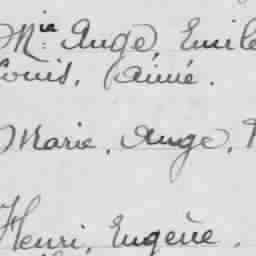 Mie Ange, Emile
Louis, Aimé.
Marie, Ange,
Henri, Eugène.